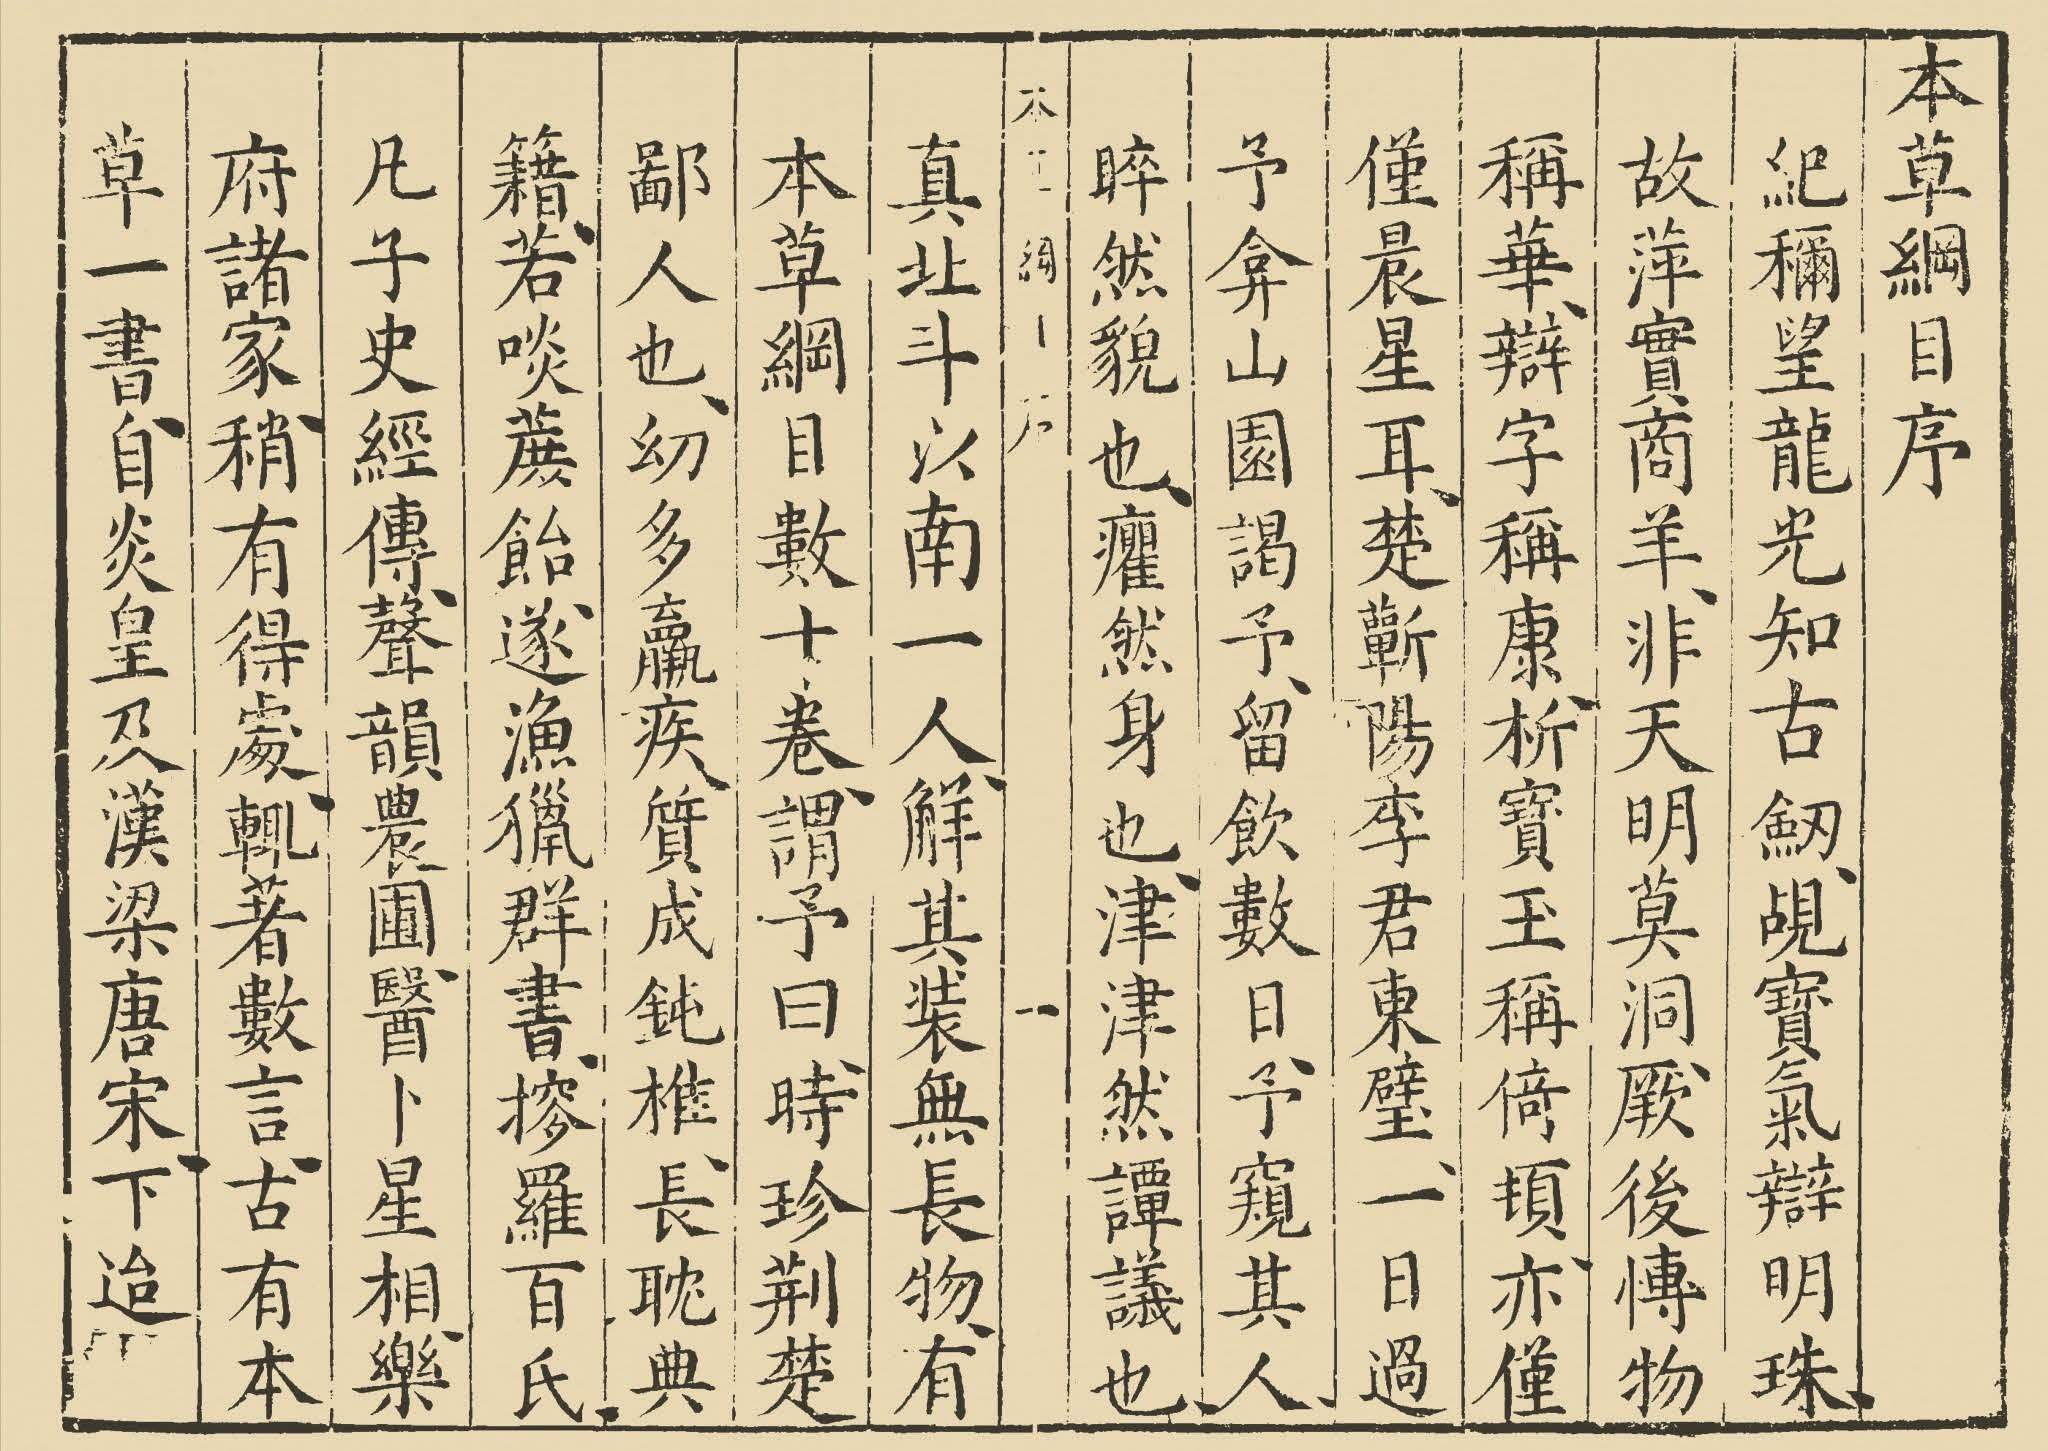 本草綱目序
紀穪望龍光知古劔覘寶氣辯明珠
故萍實商羊非天明莫洞厥後愽物
稱華辯字稱康析寶玉稱倚頓亦僅
僅晨星耳楚蘄陽李君東璧一日過
予弇山園謁予留飲數日予窺其人
睟然貌也癯然身也津津然譚議也
本 綱
一
真北斗以南一人觧其装無長物有
本草綱目數十卷謂予曰時珍荆楚
鄙人也幼多羸疾質成鈍椎長耽典
籍若啖蔗飴遂漁獵群書搜羅百氏
凡子史經傳聲韻農圃醫卜星相樂
府諸家稍有得處輒著數言古有本
草一書自炎皇及漢梁唐宋下迨